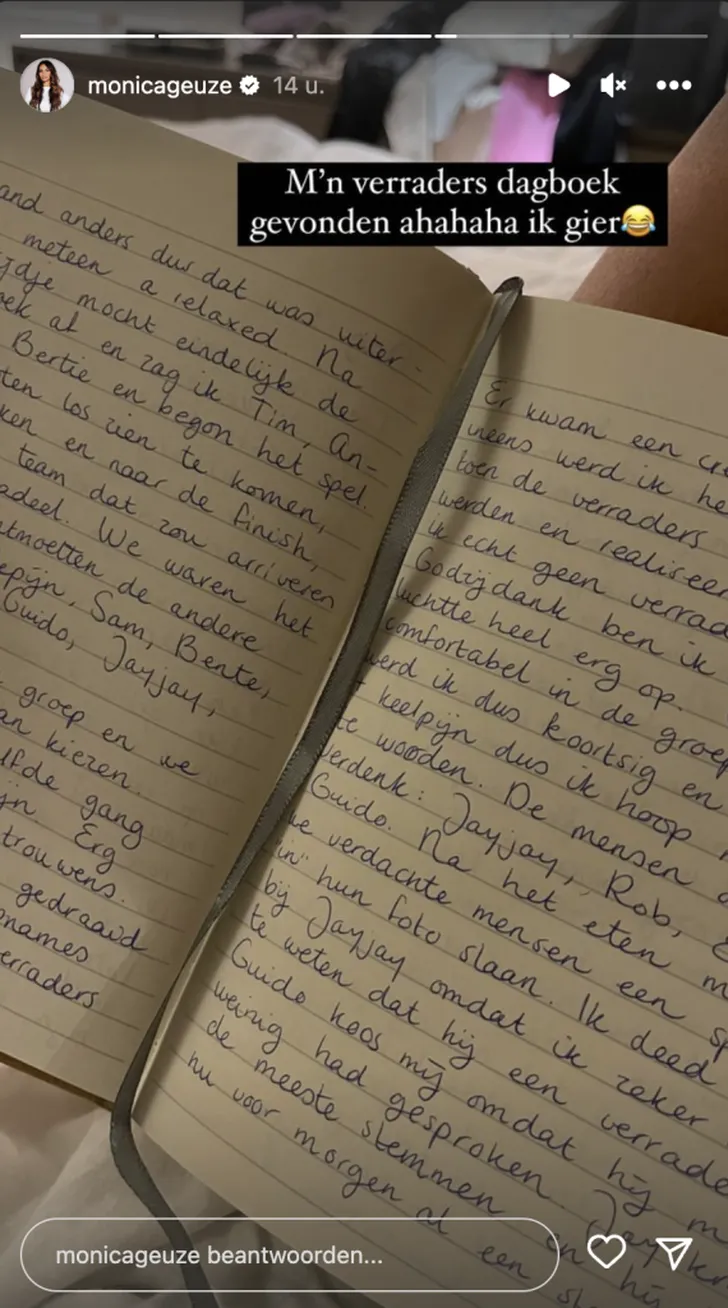 monicageuze 14 u.
M'n verraders dagboek
gevonden ahahaha ik gier😂
and anders dus dat was uiter-
meteen a relaxed. Na
mocht eindelijk de
ek af en zag ik Tim, An-
Bertie en begon het spel.
ten los zien te komen,
ken en naar de finish,
team dat zou arriveren
adeel. We waren het
ntmoetten de andere
epijn, Sam, Bente,
Guido, Jayjay,
groep en we
an kiezen.
lfde gang
ijn Erg
trouwens.
gedraaid
pnames
erraders
Er kwam een
ineens werd ik he
toen de verraders
werden en realiseer
ik echt geen verrad
Godzijdank ben ik
luchtte heel erg op.
comfortabel in de groep
werd ik dus koortsig en
keelpijn dus ik hoop
te worden. De mensen
verdenk: Jayjay, Rob,
Guido. Na het eten m
we verdachte mensen een sp
"in" hun foto slaan. Ik deed
bij Jayjay omdat ik zeker
te weten dat hij een verrade
Guido koos mij omdat hij m
weinig had gesproken. Jay
de meeste stemmen en hij
nu voor morgen al een sl
monicageuze beantwoorden...